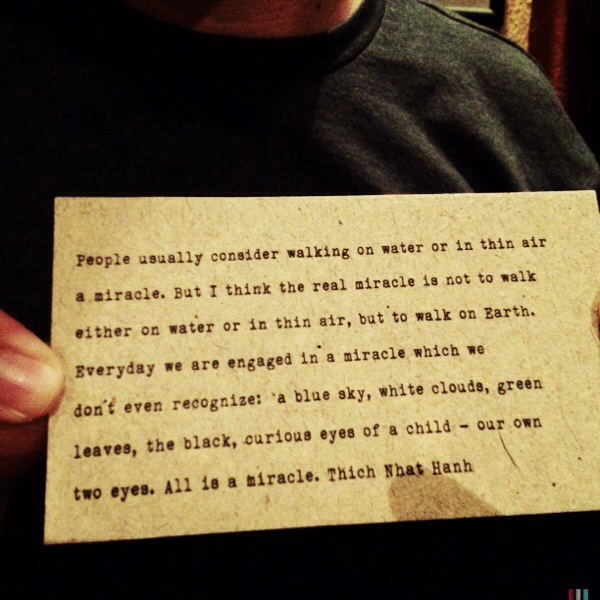 People usually consider walking on water or in thin air
a miracle. But I think the real miracle is not to walk
either on water or in thin air, but to walk on Earth.
Everyday we are engaged in a miracle which we
don't even recognize: a blue sky, white clouds, green
leaves, the black, curious eyes of a child - our own
two eyes. All is a miracle. Thich Nhat Hanh